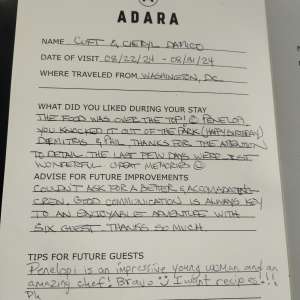 ADARA
NAME CURT & CHERYL
DATE OF VISIT 08/22/24 - 08/31/24
WHERE TRAVELED FROM WASHINGTON, DC
WHAT DID YOU LIKED DURING YOUR STAY
THE FOOD WAS OVER THE TOP! PENELOPI
YOU KNOCKED IT OUT OF THE PARK (HAPPY BIRTHDAY)
DEMITRIS & PHIL THANKS FOR THE ATTENTION
TO DETAIL. THE LAST FEW DAYS WERE JUST
WONDERFUL GREAT MEMORIES
ADVISE FOR FUTURE IMPROVEMENTS
COULDN'T ASK FOR A BETTER & ACCOMADATING
CREW. GOOD COMMUNICATION IS ALWAYS KEY
TO AN ENJOYABLE ADVENTURE WITH
SIX GUEST. THANKS SO MUCH
TIPS FOR FUTURE GUESTS
Penelopi is an impressive young woman and an
amazing chef! Bravo I want recipes!!!